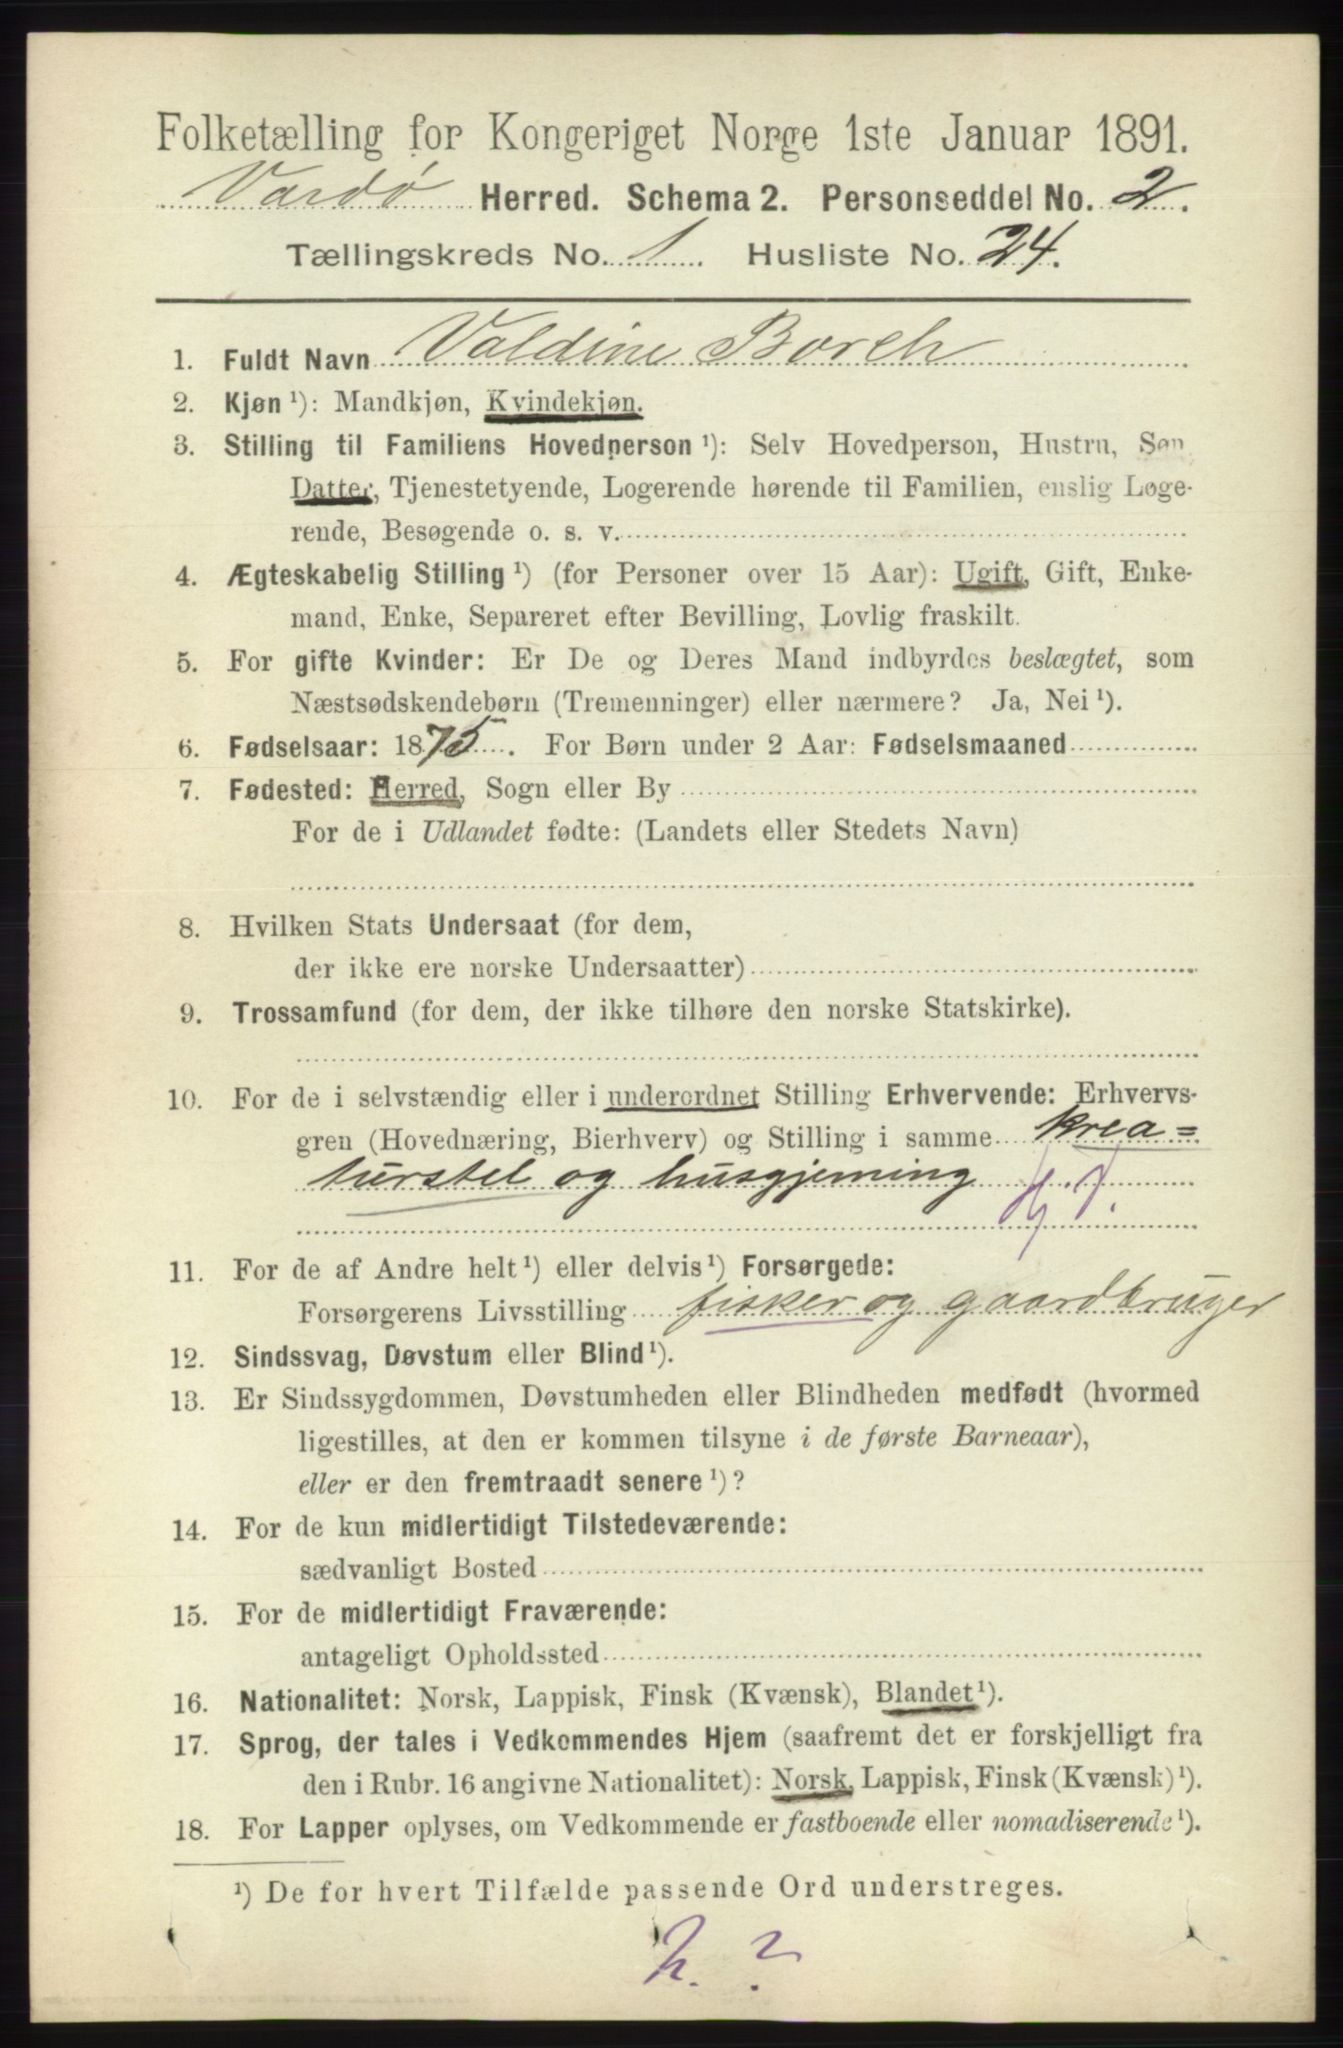 Folketælling for Kongeriget Norge 1ste Januar 1891.
Vardø Herred. Schema 2. Personseddel No. 2.
Tællingskreds No. 1 Husliste No. 24.
1. Fuldt Navn Valdine Borch
2. Kjøn ¹): Mandkjøn, Kvindekjøn.
3. Stilling til Familiens Hovedperson ¹): Selv Hovedperson, Hustru, Søn,
Datter, Tjenestetyende, Logerende hørende til Familien, enslig Loge-
rende, Besøgende o. s. v.
4. Ægteskabelig Stilling ¹) (for Personer over 15 Aar): Ugift, Gift, Enke-
mand, Enke, Separeret efter Bevilling, Lovlig fraskilt.
5. For gifte Kvinder: Er De og Deres Mand indbyrdes beslægtet, som
Næstsødskendebørn (Tremenninger) eller nærmere? Ja, Nei ¹).
6. Fødselsaar: 1875. For Børn under 2 Aar: Fødselsmaaned
7. Fødested: Herred, Sogn eller By
For de i Udlandet fødte: (Landets eller Stedets Navn)
8. Hvilken Stats Undersaat (for dem,
der ikke ere norske Undersaatter)
9. Trossamfund (for dem, der ikke tilhøre den norske Statskirke).
10. For de i selvstændig eller i underordnet Stilling Erhvervende: Erhvervs-
gren (Hovednæring, Bierhverv) og Stilling i samme Krea=
turstel og husgjerning
11. For de af Andre helt ¹) eller delvis ¹) Forsørgede:
Forsørgerens Livsstilling fisker og gaardbruger
12. Sindssvag, Døvstum eller Blind ¹).
13. Er Sindssygdommen, Døvstumheden eller Blindheden medfødt (hvormed
ligestilles, at den er kommen tilsyne i de første Barneaar),
eller er den fremtraadt senere ¹)?
14. For de kun midlertidigt Tilstedeværende:
sædvanligt Bosted
15. For de midlertidigt Fraværende:
antageligt Opholdssted
16. Nationalitet: Norsk, Lappisk, Finsk (Kvænsk), Blandet ¹).
17. Sprog, der tales i Vedkommendes Hjem (saafremt det er forskjelligt fra
den i Rubr. 16 angivne Nationalitet): Norsk, Lappisk, Finsk (Kvænsk) ¹).
18. For Lapper oplyses, om Vedkommende er fastboende eller nomadiserende ¹).
¹) De for hvert Tilfælde passende Ord understreges.